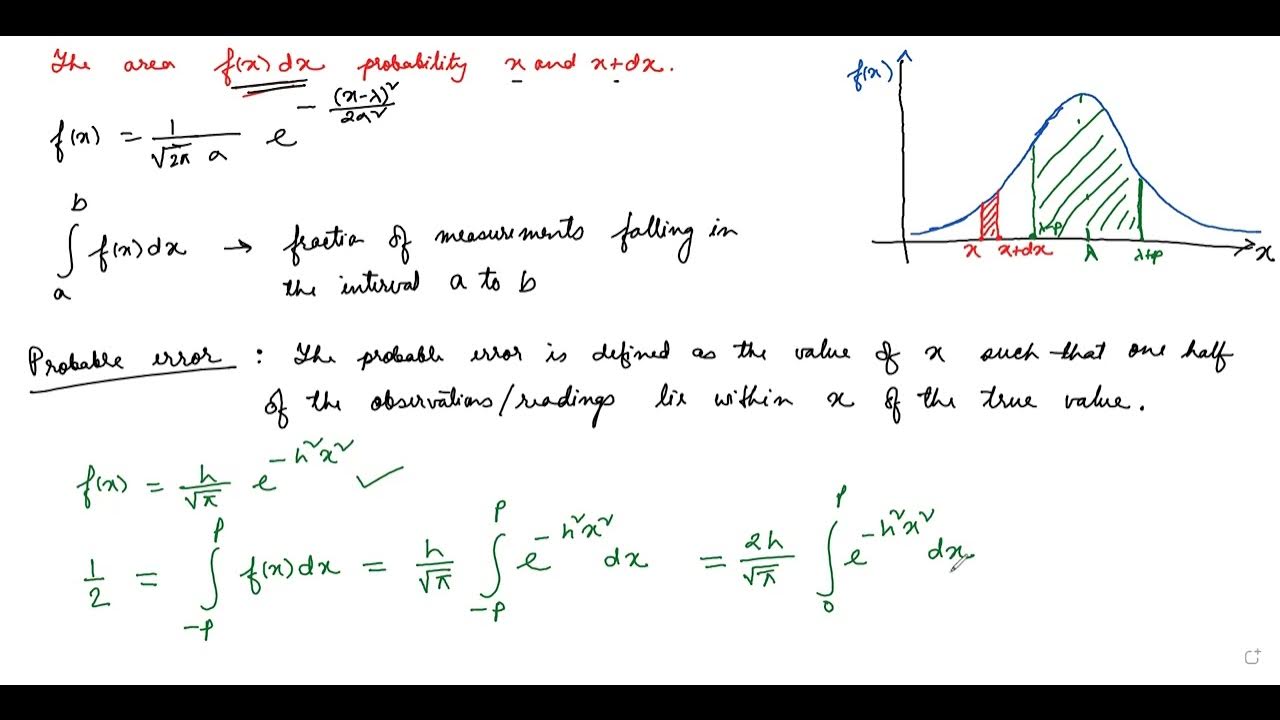 The area f(x) dx probability x and x+dx.
f(x) = 1/(√2π a) e^(-(x-λ)²/2a²)
∫_a^b f(x) dx → fraction of measurements falling in
the interval a to b
f(x)
x x+dx λ-p λ λ+p x
Probable error : The probable error is defined as the value of x such that one half
of the observations/readings lie within x of the true value.
f(x) = h/√π e^(-h²x²) ✓
1/2 = ∫_-p^p f(x) dx = h/√π ∫_-p^p e^(-h²x²) dx = 2h/√π ∫_0^p e^(-h²x²) dx